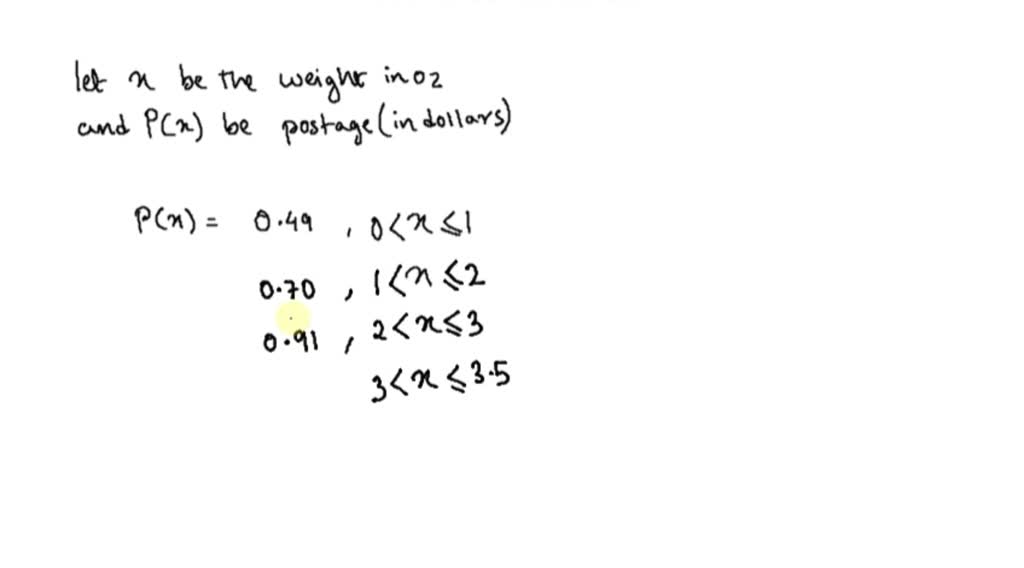 let x be the weight in oz
and P(x) be postage (in dollars)
P(x) = 0.49 , 0<x≤1
0.70 , 1<x≤2
0.91 , 2<x≤3
3<x≤3.5